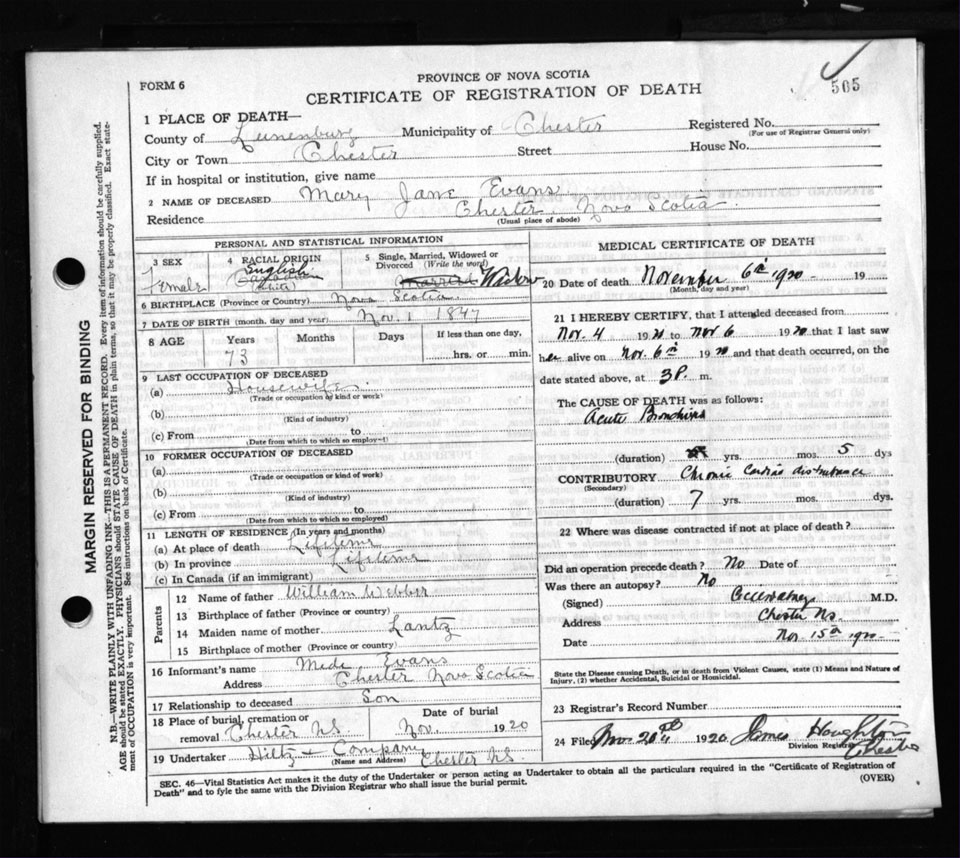 565
FORM 6
PROVINCE OF NOVA SCOTIA
CERTIFICATE OF REGISTRATION OF DEATH
1 PLACE OF DEATH—
County of Lunenburg Municipality of Chester Registered No.
(For use of Registrar General only)
City or Town Chester Street House No.
If in hospital or institution, give name
2 NAME OF DECEASED Mary Jane Evans
Residence Chester Nova Scotia
(Usual place of abode)
MARGIN RESERVED FOR BINDING
N.B.—WRITE PLAINLY WITH UNFADING INK—THIS IS A PERMANENT RECORD. Every item of information should be carefully supplied.
AGE should be stated EXACTLY. PHYSICIANS should STATE CAUSE OF DEATH in plain terms, so that it may be properly classified. Exact state-
ment of OCCUPATION is very important. See instructions on back of Certificate.
PERSONAL AND STATISTICAL INFORMATION
3 SEX
Female
4 RACIAL ORIGIN
English
(White)
5 Single, Married, Widowed or
Divorced (Write the word)
Married Widow
6 BIRTHPLACE (Province or Country) Nova Scotia
7 DATE OF BIRTH (month, day and year) Nov. 1 1847
8 AGE Years Months Days If less than one day,
73 hrs. or min.
9 LAST OCCUPATION OF DECEASED
(a) Housewife
(Trade or occupation or kind of work)
(b)
(Kind of industry)
(c) From to
(Date from which to which so employed)
10 FORMER OCCUPATION OF DECEASED
(a)
(Trade or occupation or kind of work)
(b)
(Kind of industry)
(c) From to
(Date from which to which so employed)
11 LENGTH OF RESIDENCE (In years and months)
(a) At place of death Lifetime
(b) In province Lifetime
(c) In Canada (if an immigrant)
Parents
12 Name of father William Webber
13 Birthplace of father (Province or country)
14 Maiden name of mother Lantz
15 Birthplace of mother (Province or country)
16 Informant's name Evans
Address Chester Nova Scotia
17 Relationship to deceased Son
18 Place of burial, cremation or
removal Chester NS
Date of burial
Nov. 1920
19 Undertaker Hiltz & Company Chester NS.
(Name and Address)
MEDICAL CERTIFICATE OF DEATH
20 Date of death November 6th 1920 19
(Month, day and year)
21 I HEREBY CERTIFY, that I attended deceased from
Nov. 4 1920 to Nov 6 1920 that I last saw
her alive on Nov. 6th 1920 and that death occurred, on the
date stated above, at 3P. m.
The CAUSE OF DEATH was as follows:
Acute Bronchitis
(duration) yrs. mos. 5 dys
CONTRIBUTORY Chronic Cardiac disturbance
(Secondary)
(duration) 7 yrs. mos. dys.
22 Where was disease contracted if not at place of death?
Did an operation precede death? No Date of
Was there an autopsy? No
(Signed) M.D.
Address Chester NS.
Date Nov 15th 1920
State the Disease causing Death, or in death from Violent Causes, state (1) Means and Nature of
Injury, (2) whether Accidental, Suicidal or Homicidal.
23 Registrar's Record Number
24 Filed Nov 20th 1920 James Houghton
Division Registrar
Chester
SEC. 46—Vital Statistics Act makes it the duty of the Undertaker or person acting as Undertaker to obtain all the particulars required in the "Certificate of Registration of
Death" and to fyle the same with the Division Registrar who shall issue the burial permit.
(OVER)